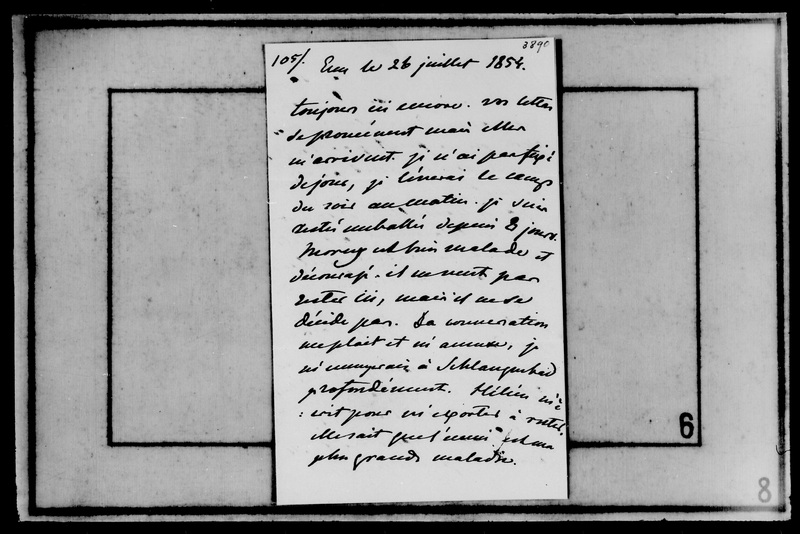 3890
105/. Ems le 26 juillet 1854.
toujours ici encore. vos lettres
se promènent mais elles
m'arrivent. je n'ai pas fixé
de jour, je lèverai le camp
du soir au matin. je suis
restée emballée depuis 8 jours.
Morny est bien malade et
découragé. il ne veut pas
rester ici, mais il ne se
décide pas. Sa conversation
me plait et m'amuse, je
m'ennuyerais à Schlangenbad
profondément. Hélène m'é
:crit pour m'exhorter à rester.
elle sait que l'ennui est ma
plus grande maladie.
6
8